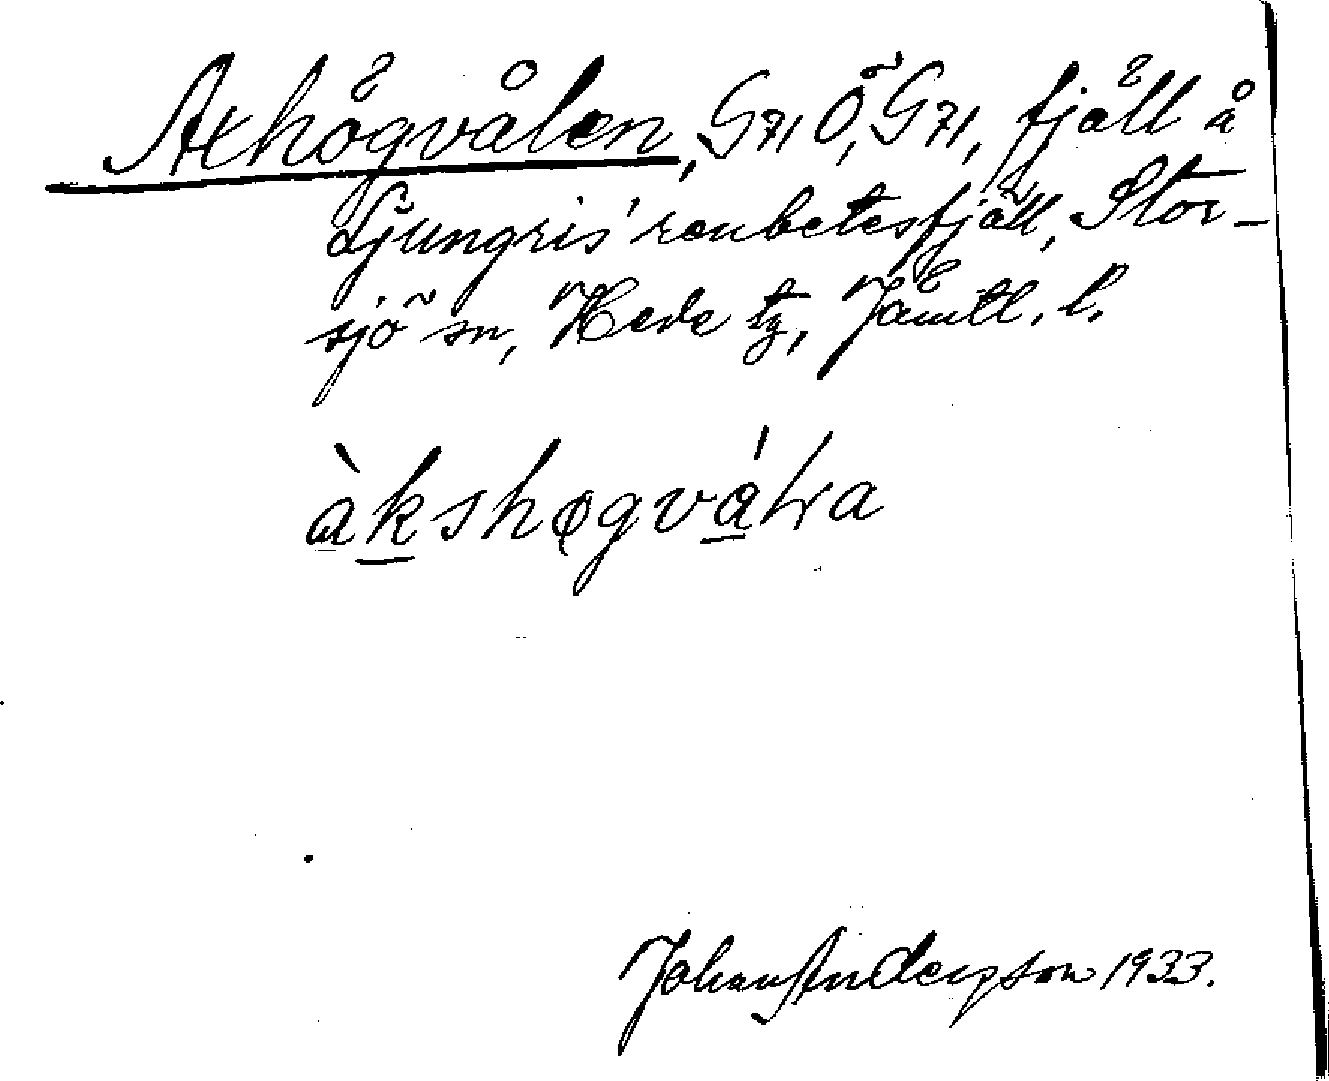 Axhögvålen, G71 Ö, G71, fjäll å
Ljungris' renbetesfjäll, Stor-
sjö sn, Hede tg, Jämtl. l.
àkshøgválra
Johan Anderson 1933.